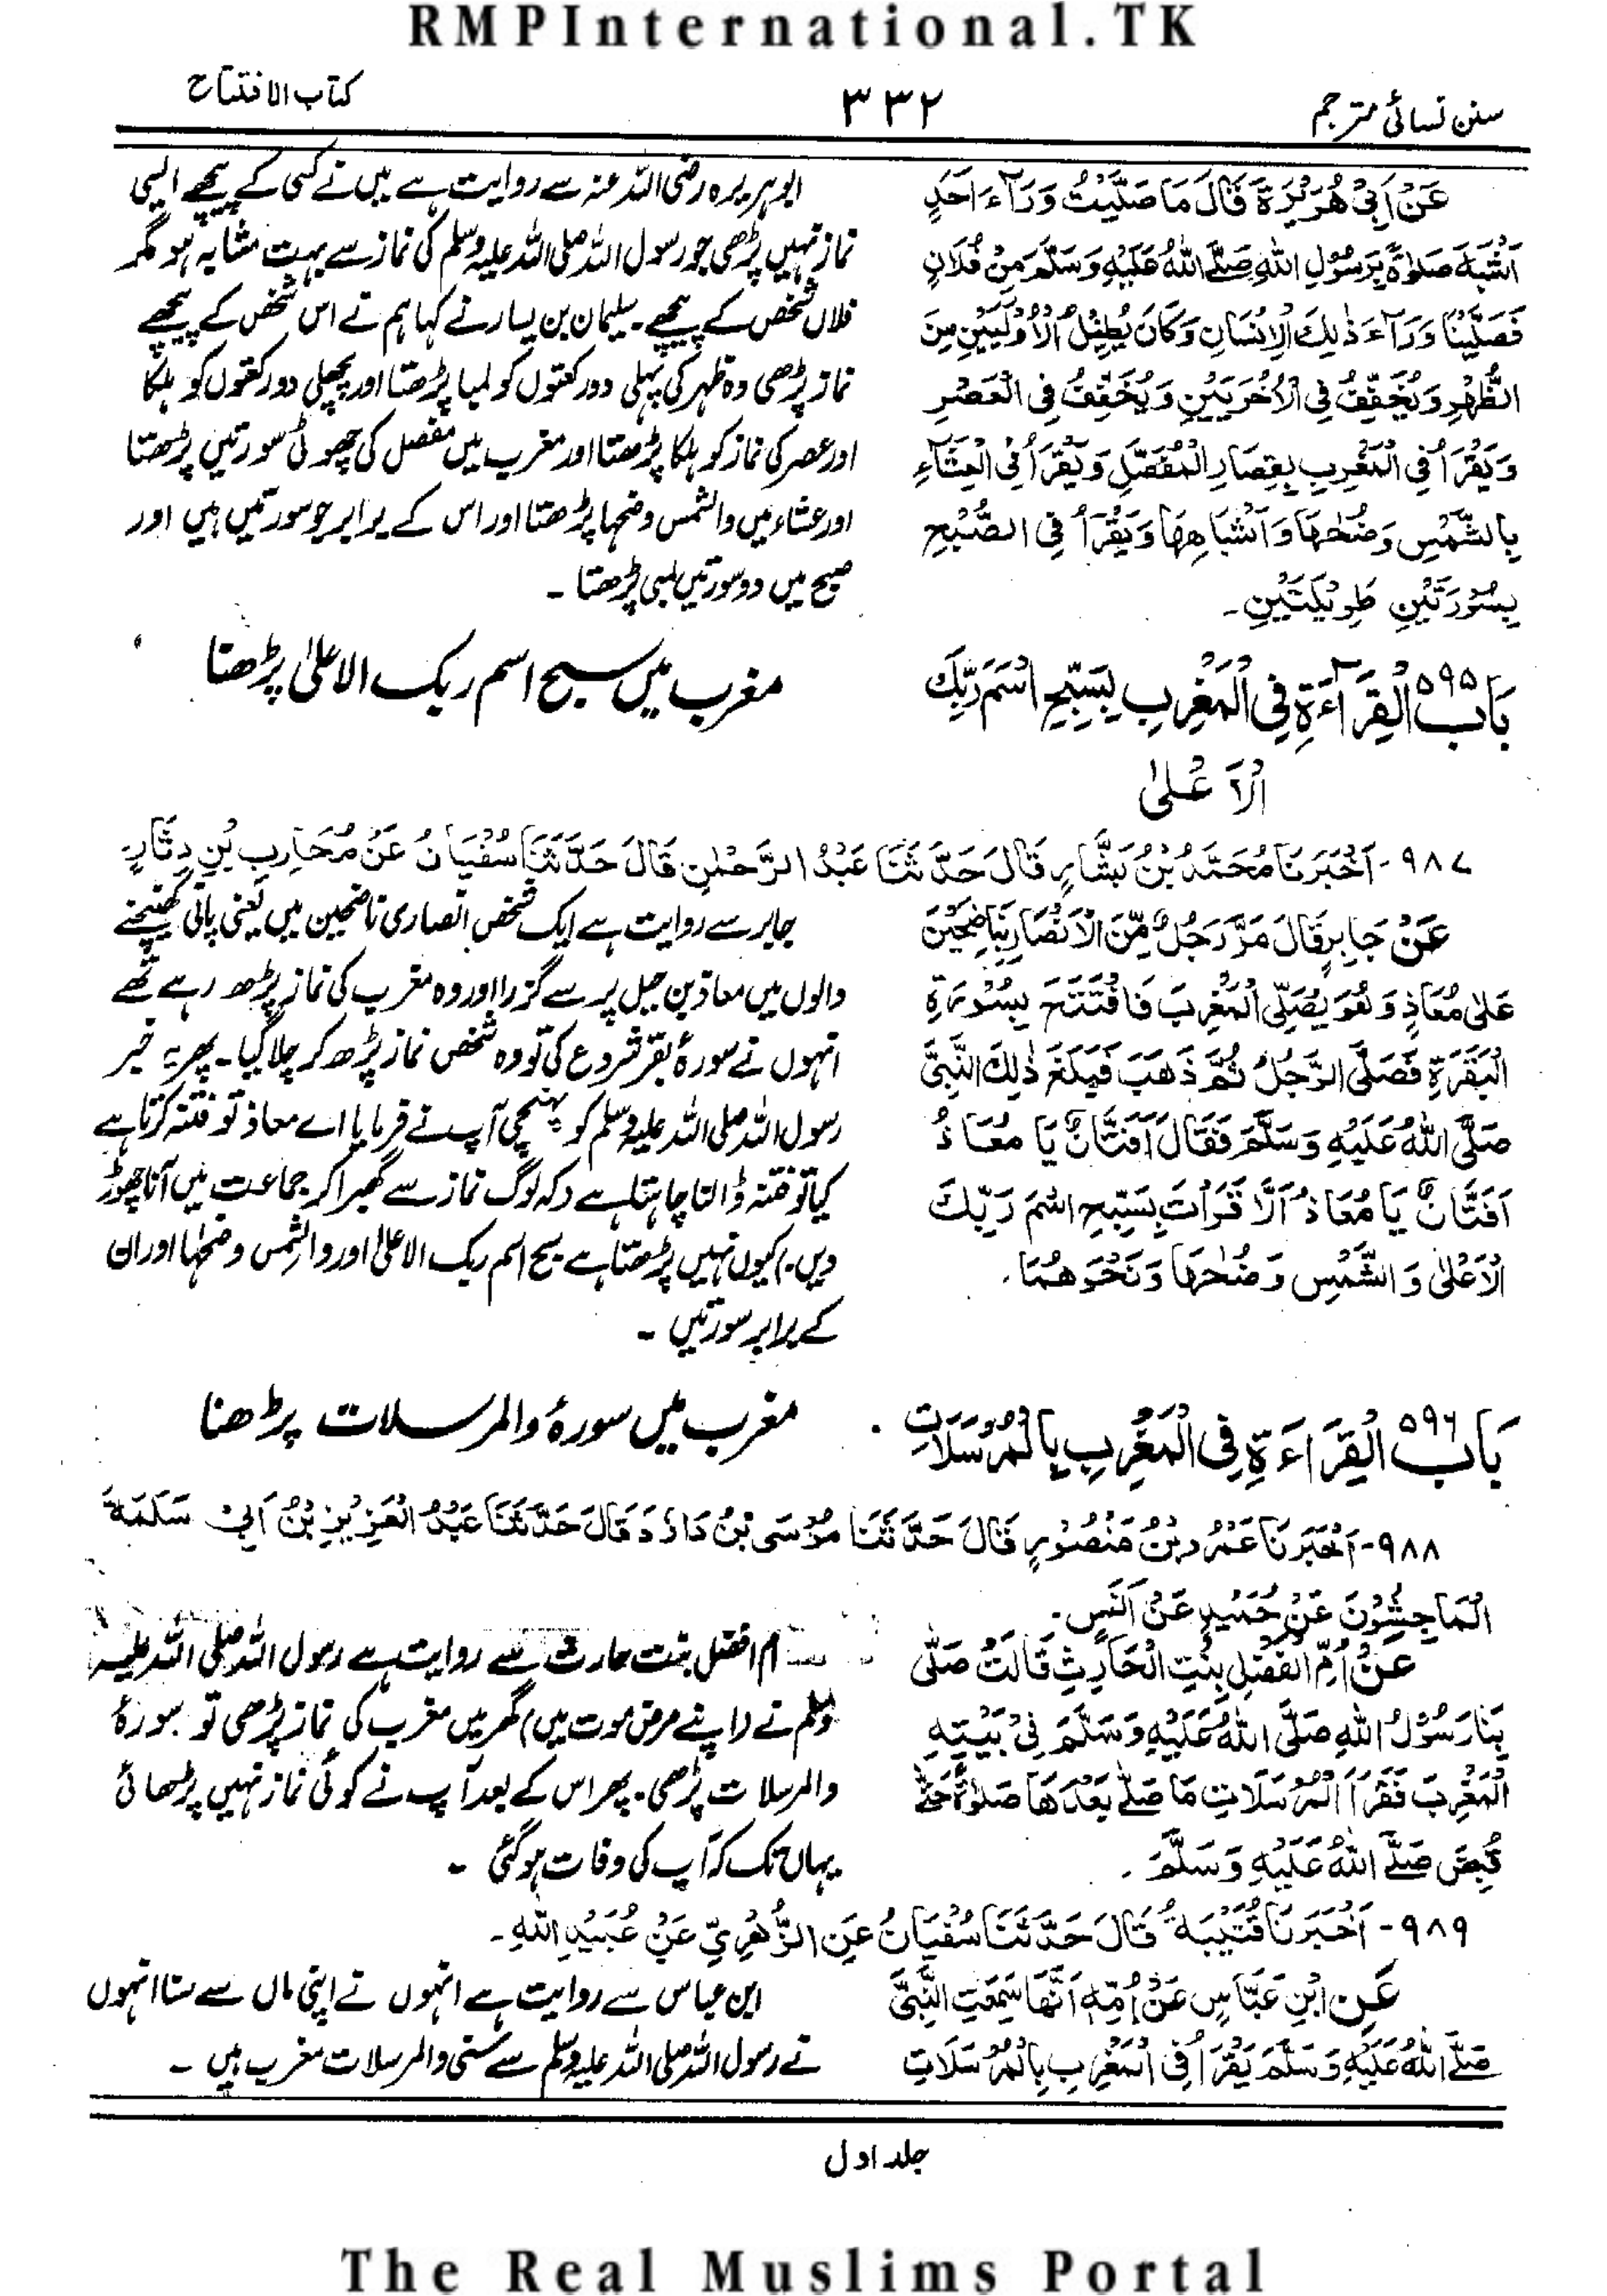 RMPInternational.TK
سنن نسائی مترجم
۳۳۲
کتاب الافتتاح
عَنْ اَبِیْ هُرَیْرَةَ قَالَ مَا صَلَّیْتُ وَرَآءَ اَحَدٍ
اَشْبَهَ صَلٰوةً بِرَسُوْلِ اللهِ صَلَّی اللهُ عَلَیْهِ وَسَلَّمَ مِنْ فُلَانٍ
فَصَلَّیْنَا وَرَآءَ ذٰلِكَ الْاِنْسَانِ وَكَانَ یُطِیْلُ الْاُوْلَیَیْنِ مِنَ
الظُّهْرِ وَیُخَفِّفُ فِی الْاُخْرَیَیْنِ وَیُخَفِّفُ فِی الْعَصْرِ
وَیَقْرَاُ فِی الْمَغْرِبِ بِقِصَارِ الْمُفَصَّلِ وَیَقْرَاُ فِی الْعِشَآءِ
بِالشَّمْسِ وَضُحٰهَا وَاَشْبَاهِهَا وَیَقْرَاُ فِی الصُّبْحِ
بِسُوْرَتَیْنِ طَوِیْلَتَیْنِ۔
ابو ہریرہ رضی اللہ عنہ سے روایت ہے میں نے کسی کے پیچھے ایسی
نماز نہیں پڑھی جو رسول اللہ صلی اللہ علیہ وسلم کی نماز سے بہت مشابہ ہو مگر
فلاں شخص کے پیچھے۔ سلیمان بن یسار نے کہا ہم نے اس شخص کے پیچھے
نماز پڑھی وہ ظہر کی پہلی دو رکعتوں کو لمبا پڑھتا اور پچھلی دو رکعتوں کو ہلکا
اور عصر کی نماز کو ہلکا پڑھتا اور مغرب میں مفصل کی چھوٹی سورتیں پڑھتا
اور عشاء میں والشمس وضحہا پڑھتا اور اس کے برابر جو سورتیں ہیں اور
صبح میں دو سورتیں لمبی پڑھتا ۔
بَاب ۵۹۵ الْقِرَآءَةِ فِی الْمَغْرِبِ بِسَبِّحِ اسْمَ رَبِّكَ
الْاَعْلٰی
مغرب میں سبح اسم ربک الاعلیٰ پڑھنا
۹۸۷- اَخْبَرَنَا مُحَمَّدُ بْنُ بَشَّارٍ قَالَ حَدَّثَنَا عَبْدُ الرَّحْمٰنِ قَالَ حَدَّثَنَا سُفْیَانُ عَنْ مُحَارِبِ بْنِ دِثَارٍ
عَنْ جَابِرٍ قَالَ مَرَّ رَجُلٌ مِّنَ الْاَنْصَارِ بِنَاضِحَیْنِ
عَلٰی مُعَاذٍ وَهُوَ یُصَلِّی الْمَغْرِبَ فَافْتَتَحَ بِسُوْرَةِ
الْبَقَرَةِ فَصَلَّی الرَّجُلُ ثُمَّ ذَهَبَ فَبَلَغَ ذٰلِكَ النَّبِیَّ
صَلَّی اللهُ عَلَیْهِ وَسَلَّمَ فَقَالَ اَفَتَّانٌ یَا مُعَاذُ
اَفَتَّانٌ یَا مُعَاذُ اَلَّا قَرَاْتَ بِسَبِّحِ اسْمَ رَبِّكَ
الْاَعْلٰی وَالشَّمْسِ وَضُحٰهَا وَنَحْوَهُمَا.
جابر سے روایت ہے ایک شخص انصاری ناضحین میں یعنی پانی کھینچنے
والوں میں معاذ بن جبل پر سے گزرا اور وہ مغرب کی نماز پڑھ رہے تھے
انہوں نے سورۂ بقر شروع کی تو وہ شخص نماز پڑھ کر چلا گیا۔ پھر یہ خبر
رسول اللہ صلی اللہ علیہ وسلم کو پہنچی آپ نے فرمایا اے معاذ تو فتنہ کرتا ہے
کیا تو فتنہ ڈالنا چاہتا ہے (کہ لوگ نماز سے گھبرا کر جماعت میں آنا چھوڑ
دیں۔) کیوں نہیں پڑھتا ہے سبح اسم ربک الاعلیٰ اور والشمس وضحٰہا اور ان
کے برابر سورتیں ۔
بَاب ۵۹۶ الْقِرَاءَةِ فِی الْمَغْرِبِ بِالْمُرْسَلَاتِ
مغرب میں سورۂ والمرسلات پڑھنا
۹۸۸- اَخْبَرَنَا عَمْرُو بْنُ مَنْصُوْرٍ قَالَ حَدَّثَنَا مُوْسَی بْنُ دَاوٗدَ قَالَ حَدَّثَنَا عَبْدُ الْعَزِیْزِ بْنُ اَبِیْ سَلَمَةَ
الْمَاجِشُوْنَ عَنْ حُمَیْدٍ عَنْ اَنَسٍ.
عَنْ اُمِّ الْفَضْلِ بِنْتِ الْحَارِثِ قَالَتْ صَلّٰی
بِنَا رَسُوْلُ اللهِ صَلَّی اللهُ عَلَیْهِ وَسَلَّمَ فِیْ بَیْتِهِ
الْمَغْرِبَ فَقَرَاَ الْمُرْسَلَاتِ مَا صَلّٰی بَعْدَهَا صَلٰوةً حَتّٰی
قُبِضَ صَلَّی اللهُ عَلَیْهِ وَسَلَّمَ .
ام الفضل بنت حارث سے روایت ہے رسول اللہ صلی اللہ علیہ
وسلم نے (اپنے مرض موت میں) گھر میں مغرب کی نماز پڑھی تو سورۂ
والمرسلات پڑھی۔ پھر اس کے بعد آپ نے کوئی نماز نہیں پڑھائی
یہاں تک کہ آپ کی وفات ہوگئی ۔
۹۸۹- اَخْبَرَنَا قُتَیْبَةُ قَالَ حَدَّثَنَا سُفْیَانُ عَنِ الزُّهْرِیِّ عَنْ عُبَیْدِ اللهِ۔
عَنِ ابْنِ عَبَّاسٍ عَنْ اُمِّهٖ اَنَّهَا سَمِعَتِ النَّبِیَّ
صَلَّی اللهُ عَلَیْهِ وَسَلَّمَ یَقْرَاُ فِی الْمَغْرِبِ بِالْمُرْسَلَاتِ
ابن عباس سے روایت ہے انہوں نے اپنی ماں سے سنا انہوں
نے رسول اللہ صلی اللہ علیہ وسلم سے سنی والمرسلات مغرب میں ۔
جلد اول
The Real Muslims Portal